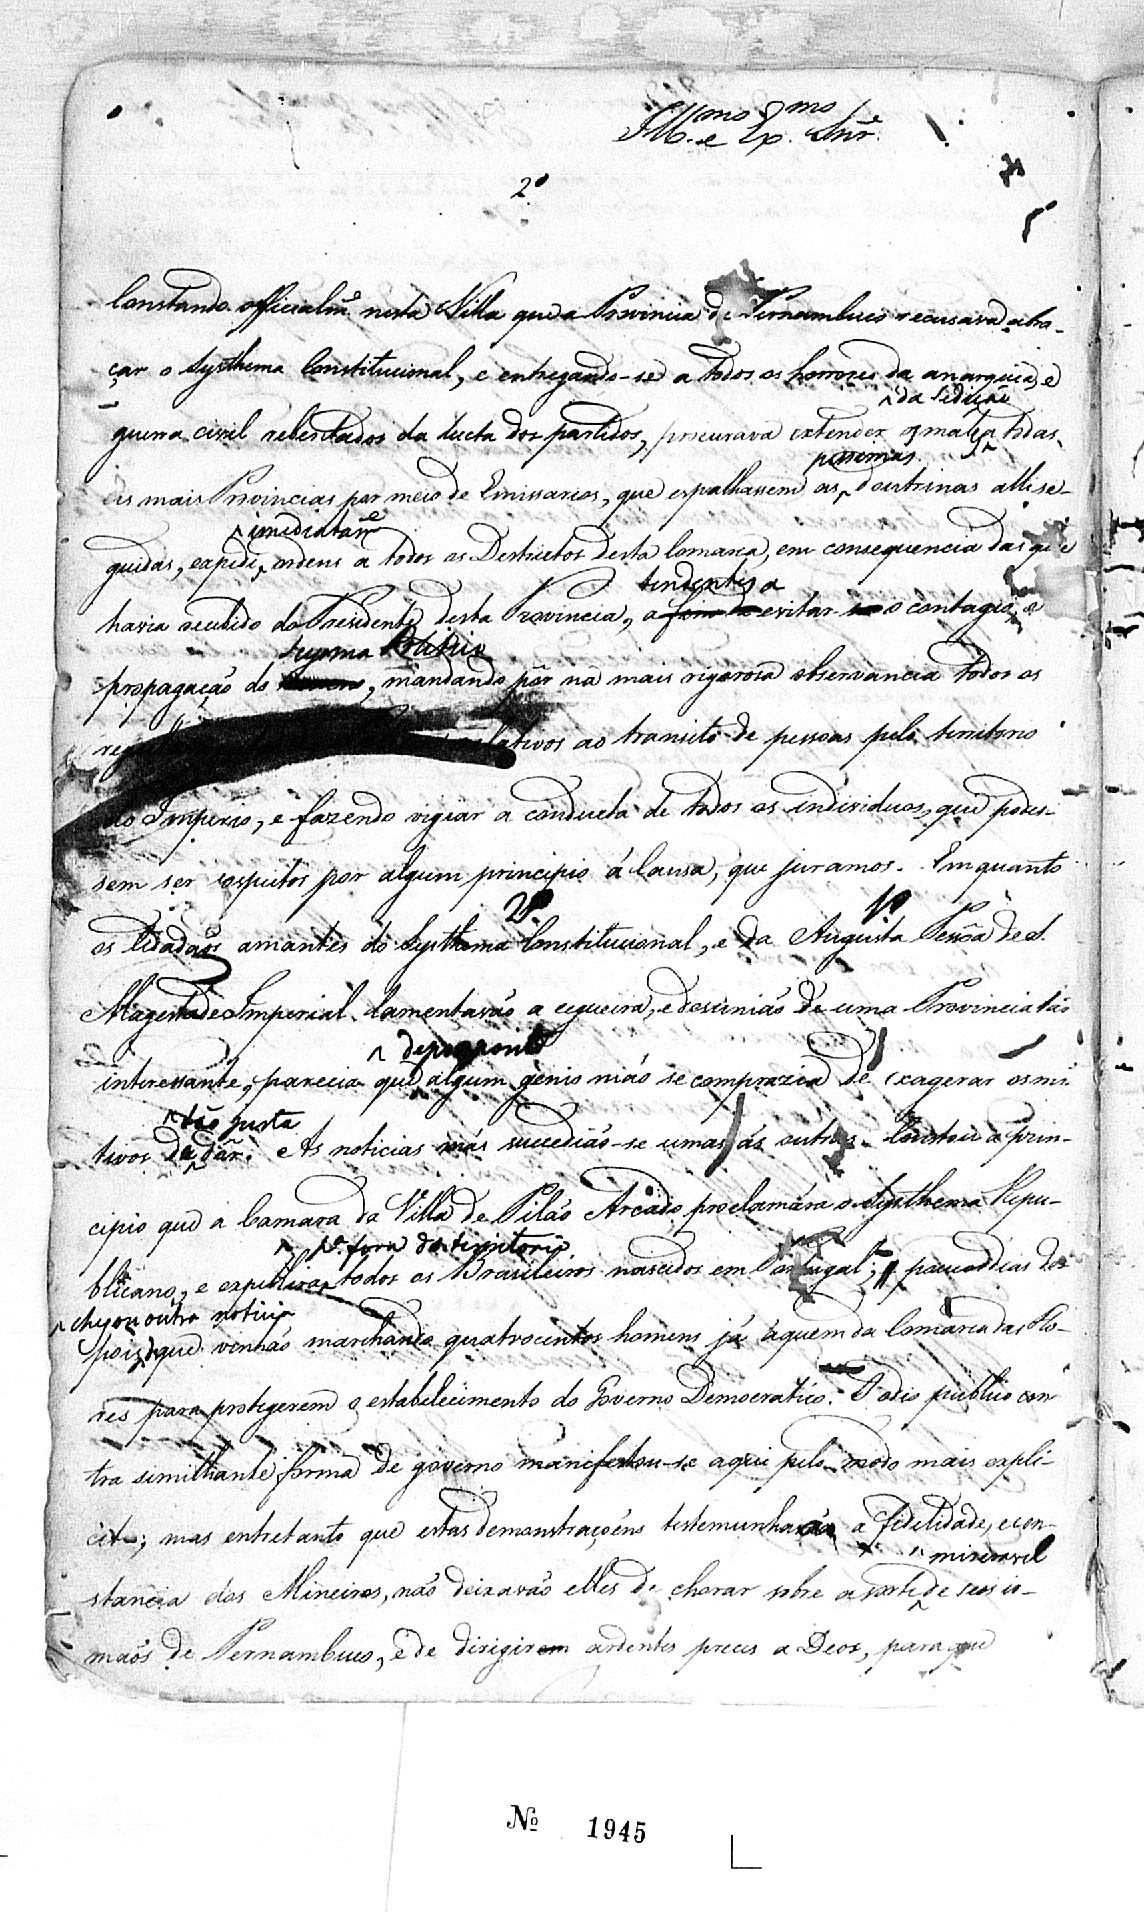 Ill.mo e Ex.mo Snr.
2º
Constando officialm.e nesta Villa que a Provincia de Pernambuco recusava abra-
çar o Systhema Constitucional, e entregando-se a todos os horrores da anarquia, e
^ da sedição
guerra civil rebentados da lucta dos partidos, procurava extender o mal a todas
pessimas
as mais Provincias por meio de Emissarios, que espalhassem as ^ doutrinas alli se-
^ imediatam.e
guidas, expedi ^ ordens a todos os Destrictos desta Comarca, em consequencia das que
tendentes a
havia recebido do Presidente desta Provincia, a fim de evitar o contagio, e
propagação do , mandando pôr na mais rigorosa observancia todos os
relativos ao transito de pessoas pelo territorio
do Imperio, e fazendo vigiar a conducta de todos os individuos, que podes-
sem ser sospeitos por algum principio á Causa, que juramos. Emquanto
2º 1º
os Cidadãos amantes do Systhema Constitucional, e da Augusta Pessôa de S.
Magestade Imperial lamentavão a cegueira, e desunião de uma Provincia tão
^ de proposito
interessante, parecia que algum genio máo se comprazia de exagerar os mo-
^ tão justa
tivos da ^ dôr. As noticias más succedião-se umas ás outras. Constou a prin-
cipio que a Camara da Villa de Pilão Arcado proclamára o Systhema Repu-
^ p.a fora do territorio
blicano, e expellira todos os Brasileiros nascidos em Portugal; poucos dias de-
^ chegou outra noticia
pois que vinhão marchando quatrocentos homens já áquem da Comarca das Flo-
res para protegerem o estabelecimento do Governo Democratico. O odio publico con-
tra similhante forma de governo manifestou-se aqui pelo modo mais expli-
cito; mas entretanto que estas demonstraçoens testemunhavão a fidelidade, e con-
^ miseravel
stancia dos Mineiros, não deixavão elles de chorar sobre a sorte de seos ir-
mãos de Pernambuco, e de dirigirem ardentes preces a Deos, para que
Nº 1945